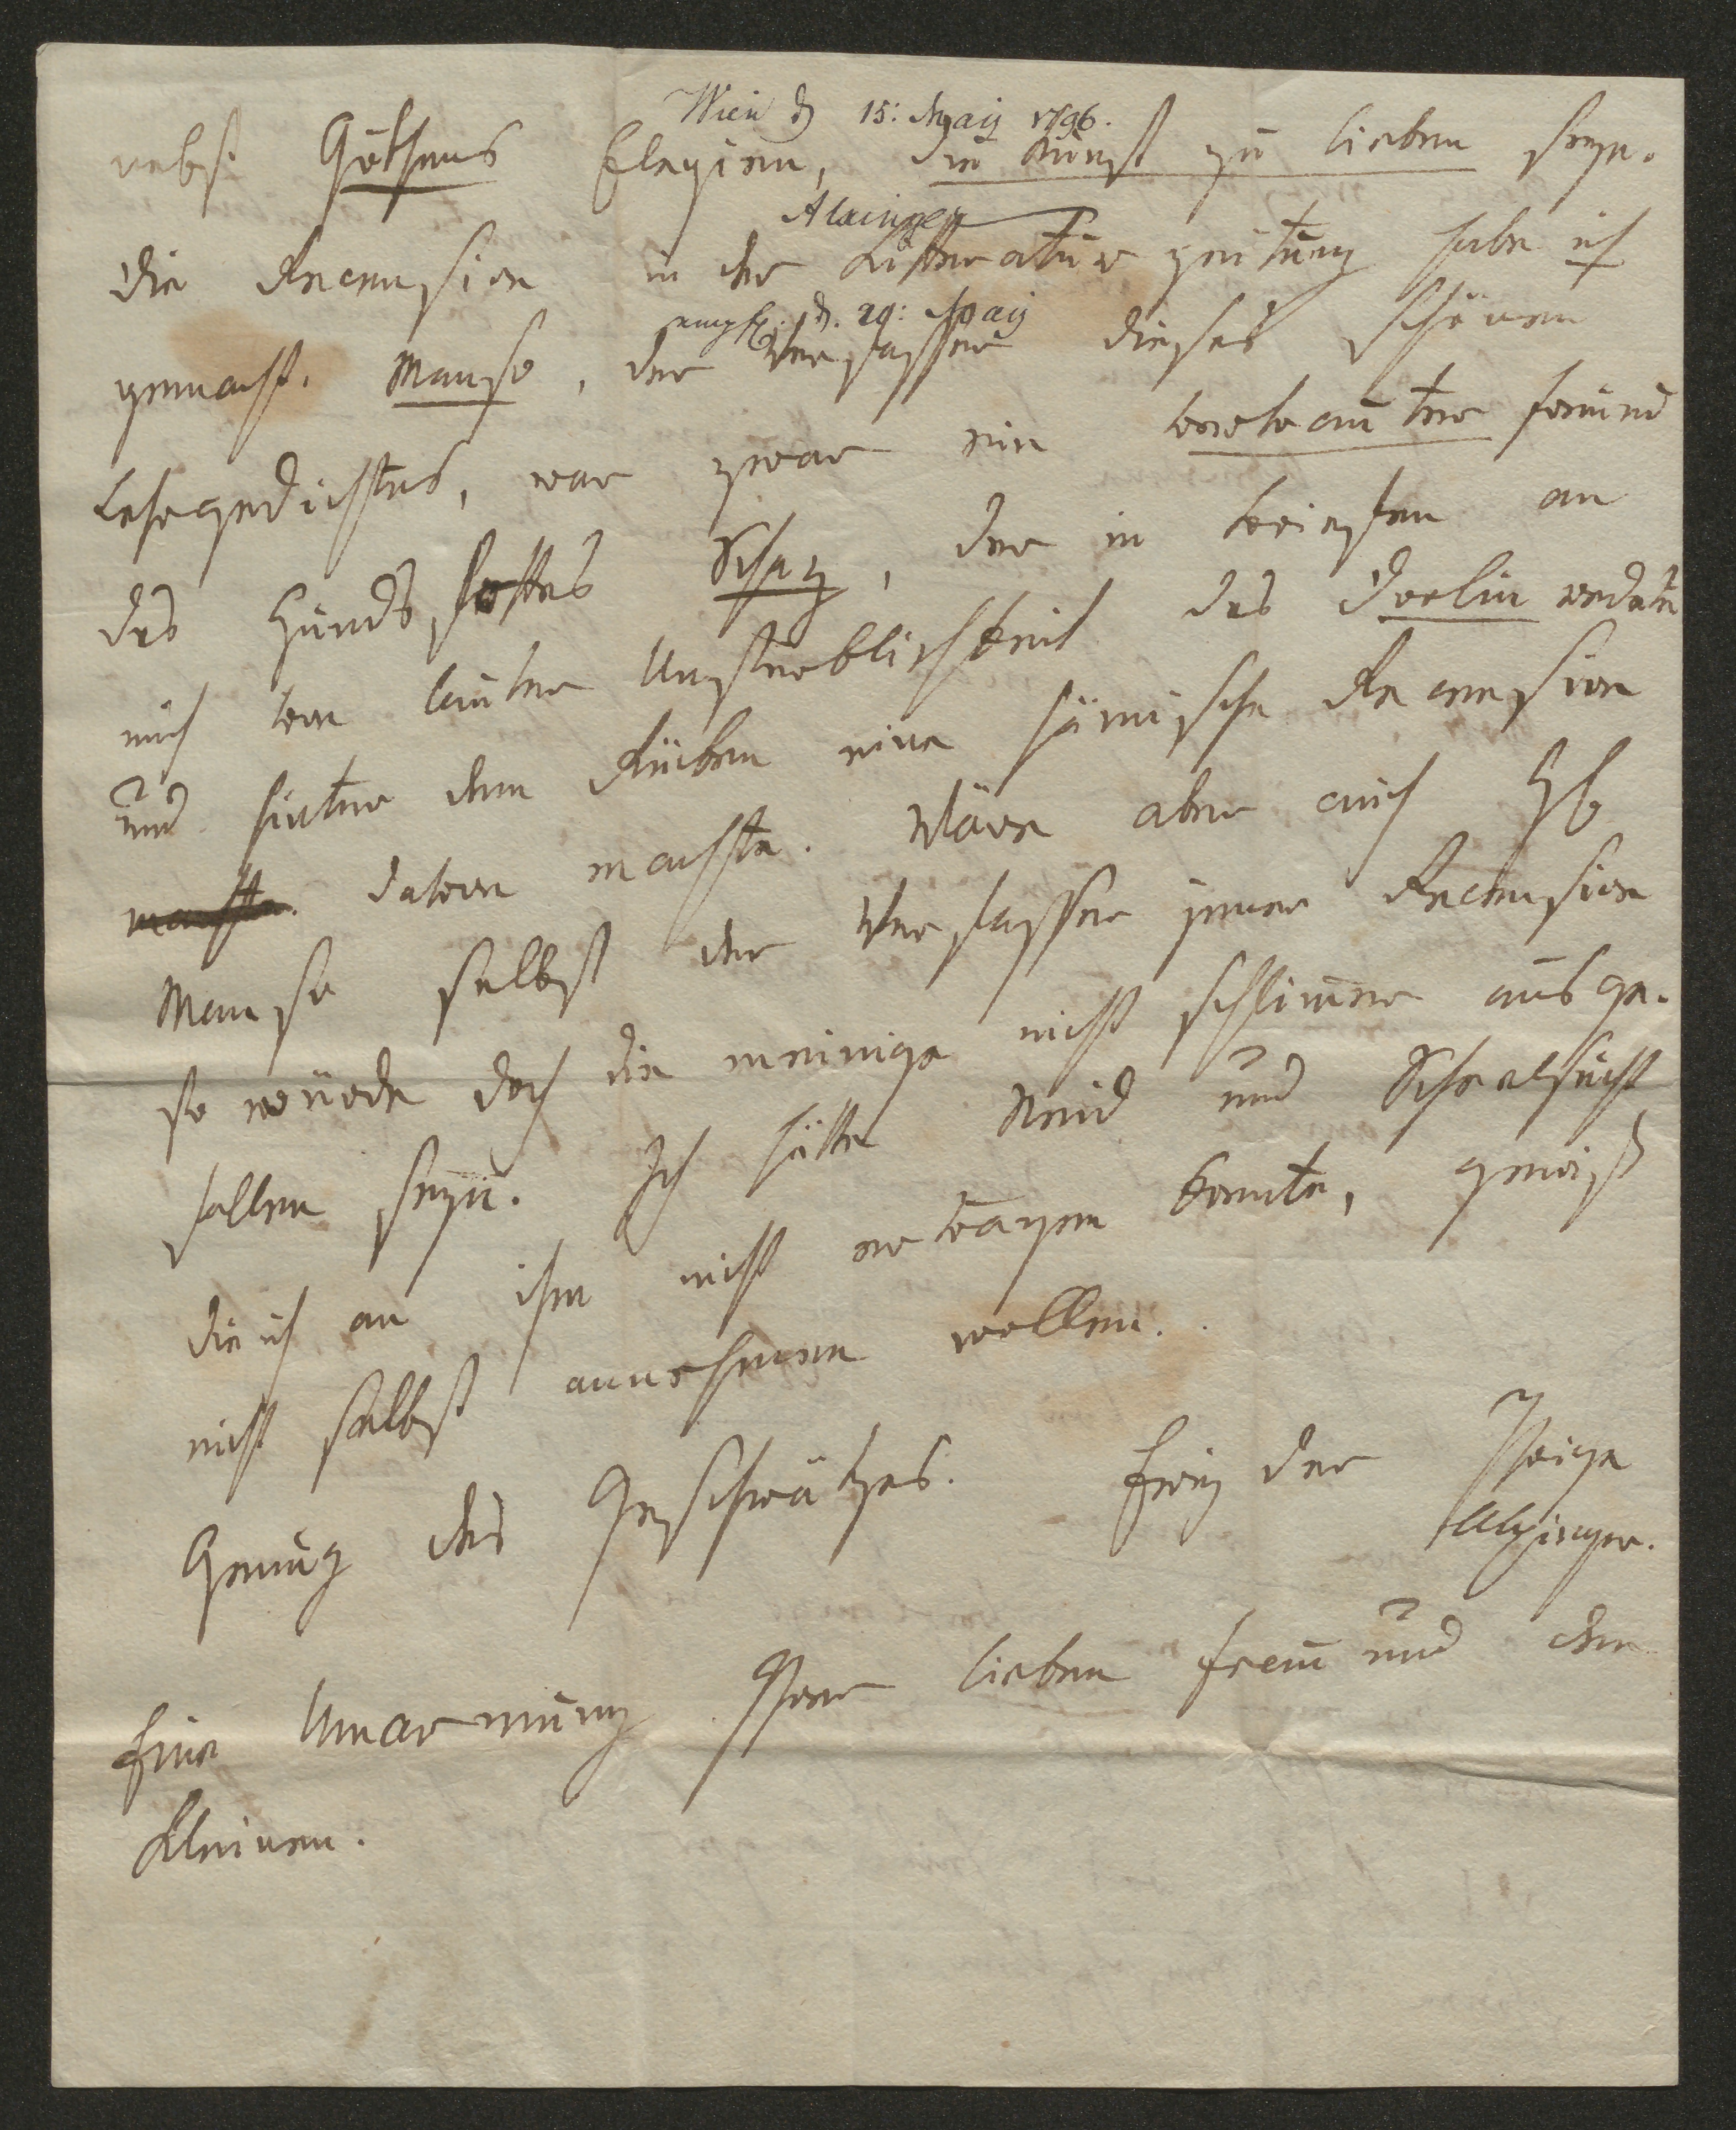 Wien d 15: May 1796.
nebst Göthens Elegien, die Kunst zu lieben seyn.
Alxinger
Die Recension in der Litteraturzeitung habe ich
empf. d. 29: May
gemacht. Manso, der Verfasser dieses schönen
Lehrgedichtes, war zwar ein vertrauter Freund
des Hundsfottes Schaz, der in Briefen an
mich von lauter Unsterblichkeit des Doolin redete
und hinter dem Rücken eine hämische Recension
davon machte. Wäre aber auch H
Manso selbst der Verfasser jener Recension
so würde doch die meinige nicht schlimmer ausge-
fallen seyn. Ich hätte Neid und Scheelsucht
die ich an ihm nicht ertragen konnte, gewiß
nicht selbst annehmen wollen.
Genug des Geschwätzes. Ewig der Ihrige
Alxinger.
Eine Umarmung Ihrer lieben Frau und der
Kleinen.